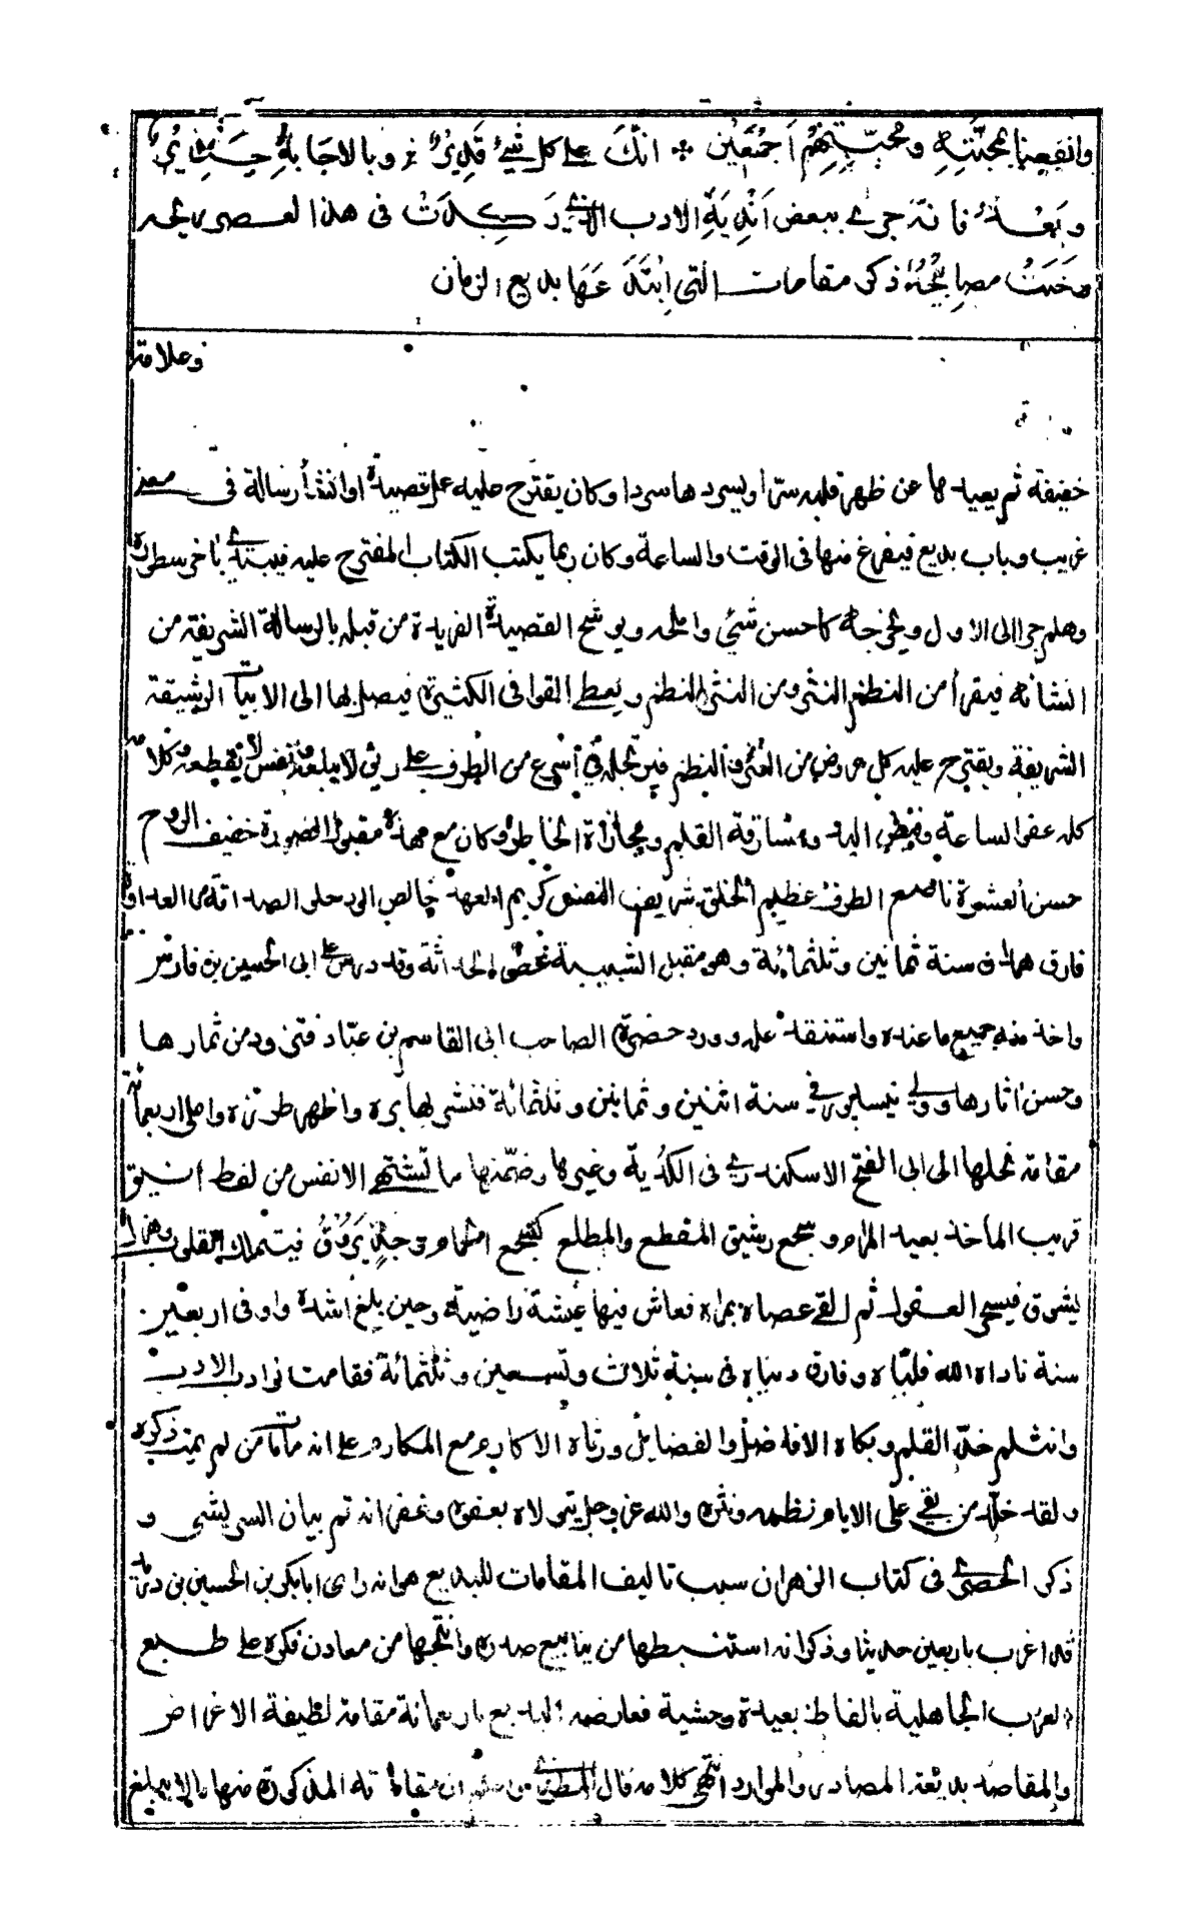 وانفعنا بمحبته ومحبتهم اجمعين * انك على كل شئ قدير وبالاجابة جدير
وبعد فانه جرى ببعض اندية الادب الذي ركدت فى هذا العصر ريحه
وخبت مصابيحه ذكر مقامات التى ابتدعها بديع الزمان
وعلامة
خفيفة ثم يعيدها عن ظهر قلبه سترا ويسردها سردا وكان يقترح عليه عمل قصيدة او انشأ رسالة فى معنى
غريب وباب بديع فيفرغ منها فى الوقت والساعة وكان ربما يكتب الكتاب المقترح عليه فيبتدى باخر سطوره
وهلم جرا الى الاول ويخرجه كاحسن شئ واملحه ويوشح القصيدة الفريدة من قبله بالرسالة الشريفة من
انشائه فيقرأ من النظم النثر ومن النثر النظم ويعطى القوافى الكثيرة فيصل بها الى الابيات الرشيقة
الشريفة ويقترح عليه كل عروض من النثر والنظم فيرتجله فى اسرع من الطرف على ريق لا يبلعه ونفس لا يقطعه وكلامه
كله عفو الساعة وفيض اليد ومسارقة القلم ومجاراة الخاطر وكان مع هذا مقبول الصورة خفيف الروح
حسن العشرة ناصع الطرف عظيم الخلق شريف النفس كريم العهد خالص الود حلو الصداقة مر العداوة
فارق همدان سنة ثمانين وثلثمائة وهو مقبل الشبيبة غض الحداثة وقد درس على ابى الحسين بن فارس
واخذ منه جميع ما عنده واستنفد علمه وورد حضرة الصاحب ابى القاسم بن عباد فتزود من ثمارها
وحسن اثارها وولى نيسابور فى سنة اثنين وثمانين وثلثمائة فنشر بها بزه واظهر طرزه واملى اربعمائة
مقامة نحلها الى ابى الفتح الاسكندرى فى الكدية وغيرها وضمنها ما تشتهى الانفس من لفظ انيق
قريب المأخذ بعيد المرام وسجع رشيق المقطع والمطلع كسجع الحمام وجد يروق فيتملك القلوب وهزل
يشوق فيسحر العقول ثم القى عصاه بهراة فعاش فيها عيشة راضية وحين بلغ اشده واوفى اربعين
سنة ناداه الله فلباه وفارق دنياه فى سنة ثلاث وتسعين وثلثمائة فقامت نوادب الادب
وانثلم حد القلم وبكاه الافاضل والفضايل ورثاه الاكارم مع المكارم على انه مامات من لم يمت ذكره
ولقد خلد من بقى على الايام نظمه ونثره والله عز وجل يتولاه بعفوه وغفرانه تم بيان السريشى و
ذكر الحصرى فى كتاب الزهر ان سبب تاليف المقامات للبديع هو انه راى ابابكر بن الحسين بن دريد
قد اغرب باربعين حديثا وذكر انه استنبطها من ينابيع صدره وانتجها من معادن فكره على طبع
العرب الجاهلية بالفاظ بعيدة وحشية فعارضه البديع باربعمائة مقامة لطيفة الاغراض
والمقاصد بديعة المصادر والموارد انتهى كلامه قال ان مقاماته المذكورة منها مالا يبلغ